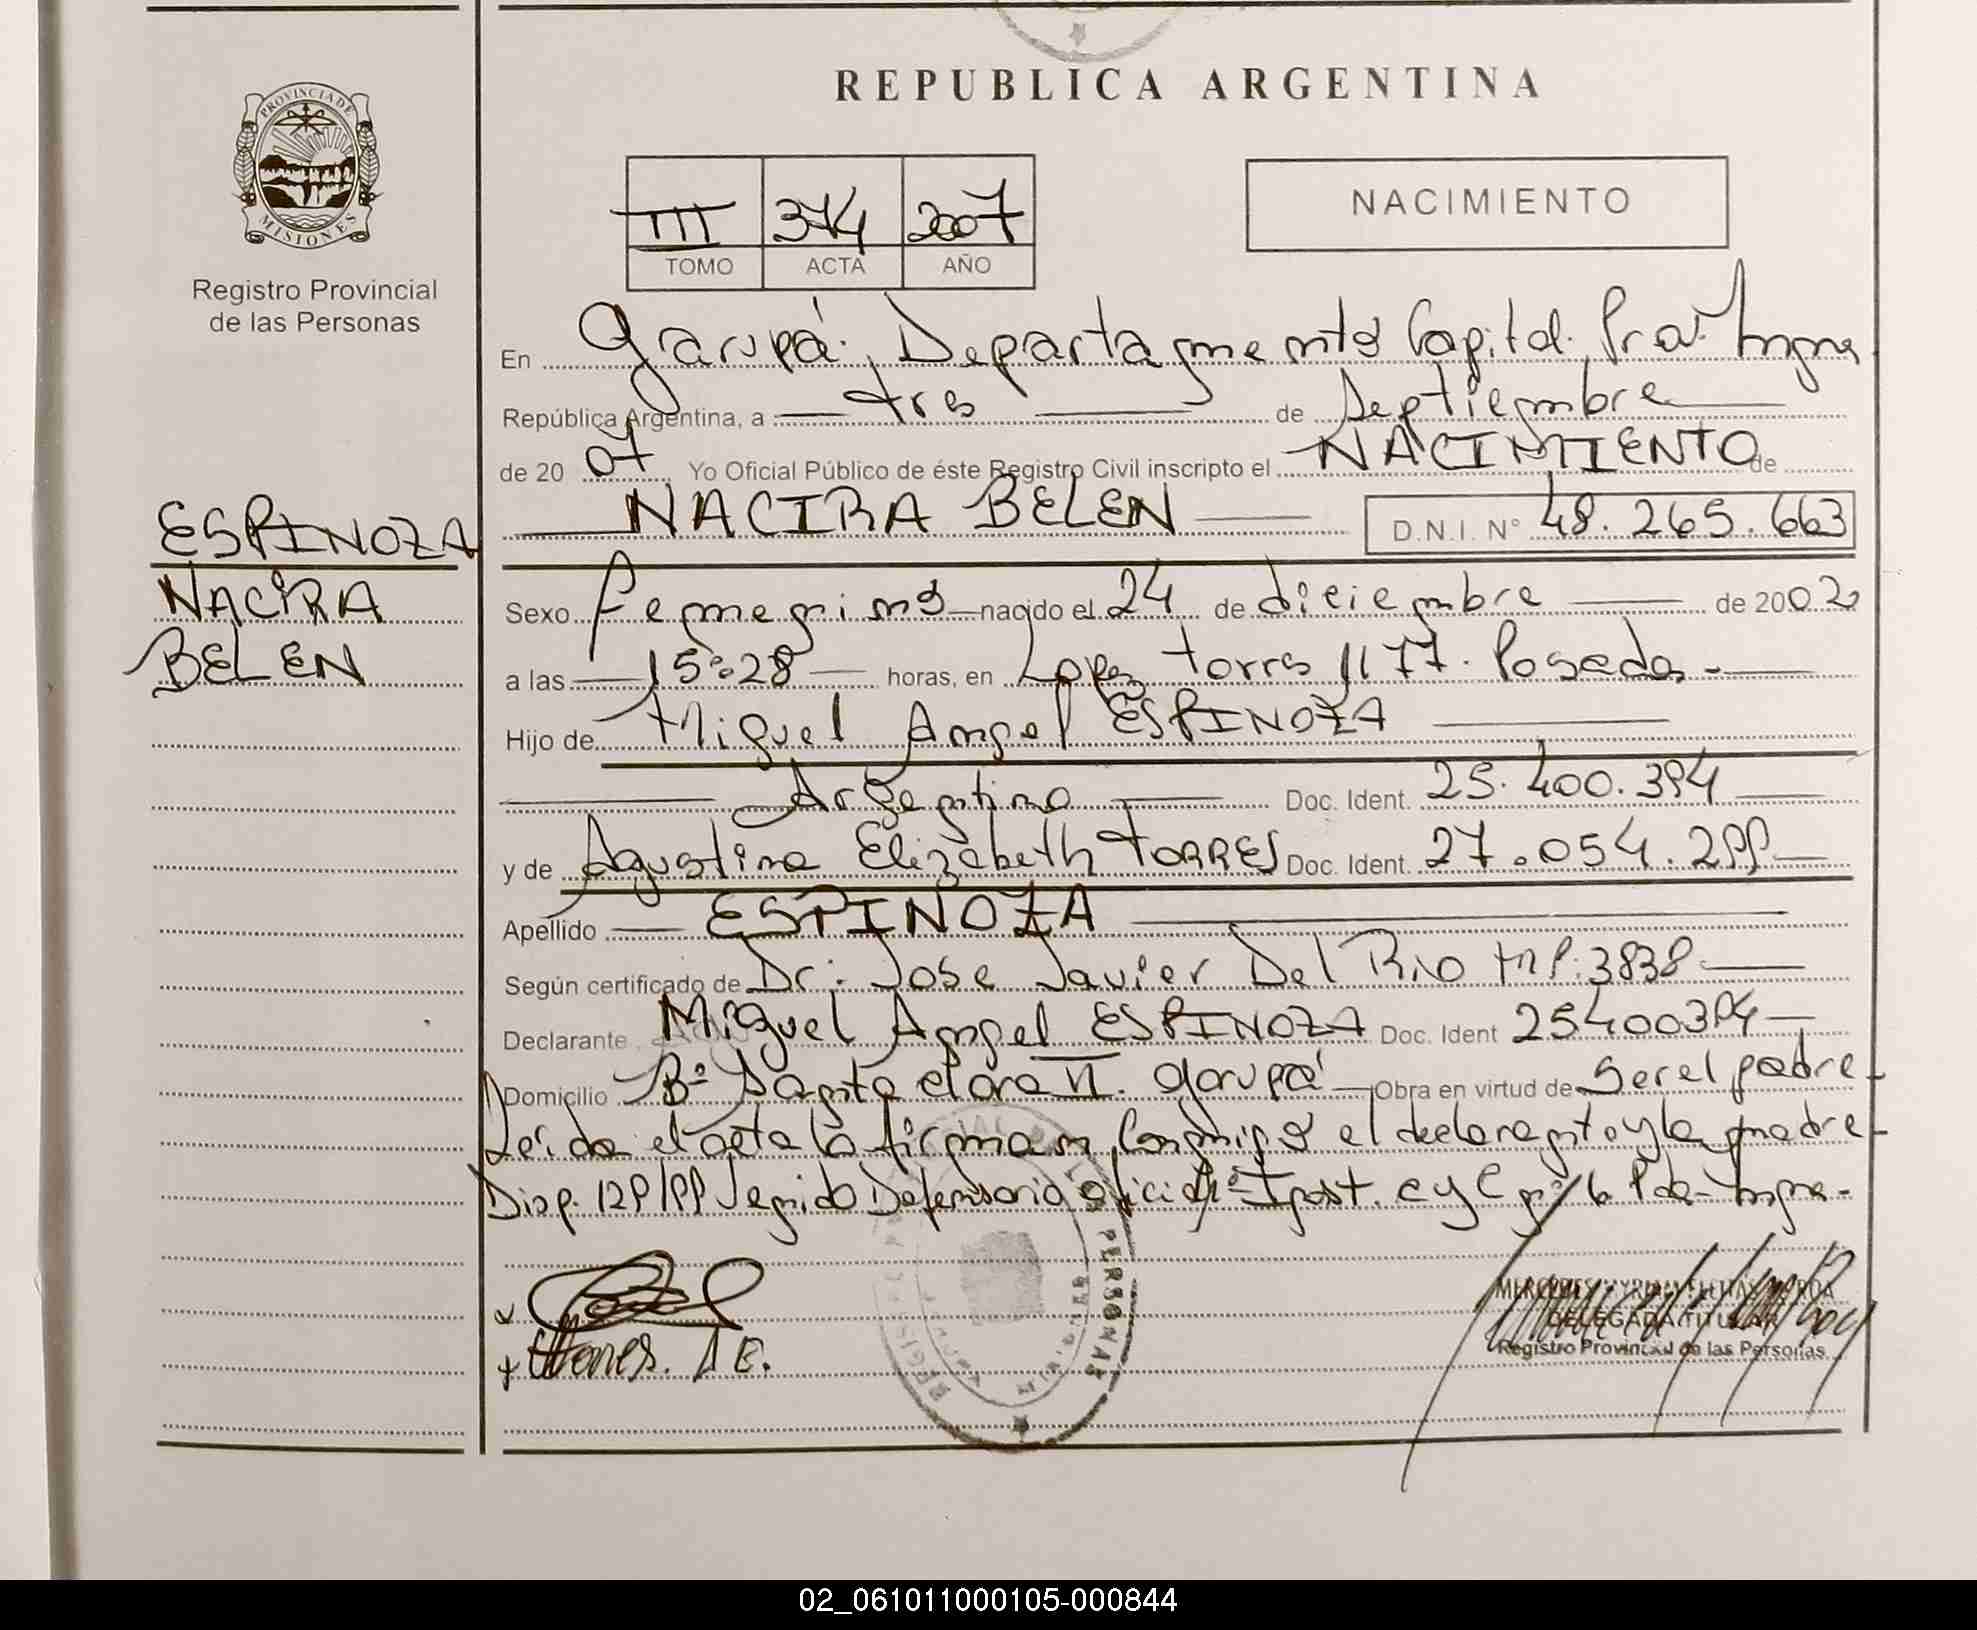 REPUBLICA ARGENTINA
PROVINCIA DE
MISIONES
Registro Provincial
de las Personas
III 374 2007
TOMO ACTA AÑO
NACIMIENTO
En Garupá. Departamento Capital. Pcia. Mnes
República Argentina, a tres de Septiembre
de 20 07 Yo Oficial Público de éste Registro Civil inscripto el NACIMIENTO de
NACIRA BELEN D.N.I. N° 48.265.663
ESPINOZA
NACIRA
BELEN
Sexo femenino nacido el 24 de diciembre de 2002
a las 15:28 horas, en Lopez Torres 1177. Posadas.-
Hijo de Miguel Angel ESPINOZA
Argentina Doc. Ident. 25.400.394
y de Agustina Elizabeth TORRES Doc. Ident. 27.054.299
Apellido ESPINOZA
Según certificado de Dr. Jose Javier Del Rio M.P.:3838
Declarante Miguel Angel ESPINOZA Doc. Ident 25400394
Domicilio B° Santa Clara VI. Garupá Obra en virtud de Ser el padre
Leída el acta la firman Conmigo el declarante y la madre
Disp. 129/99 Defensoria oficial
Torres. A E.
DELEGADA TITULAR
Registro Provincial de las Personas
02_061011000105-000844